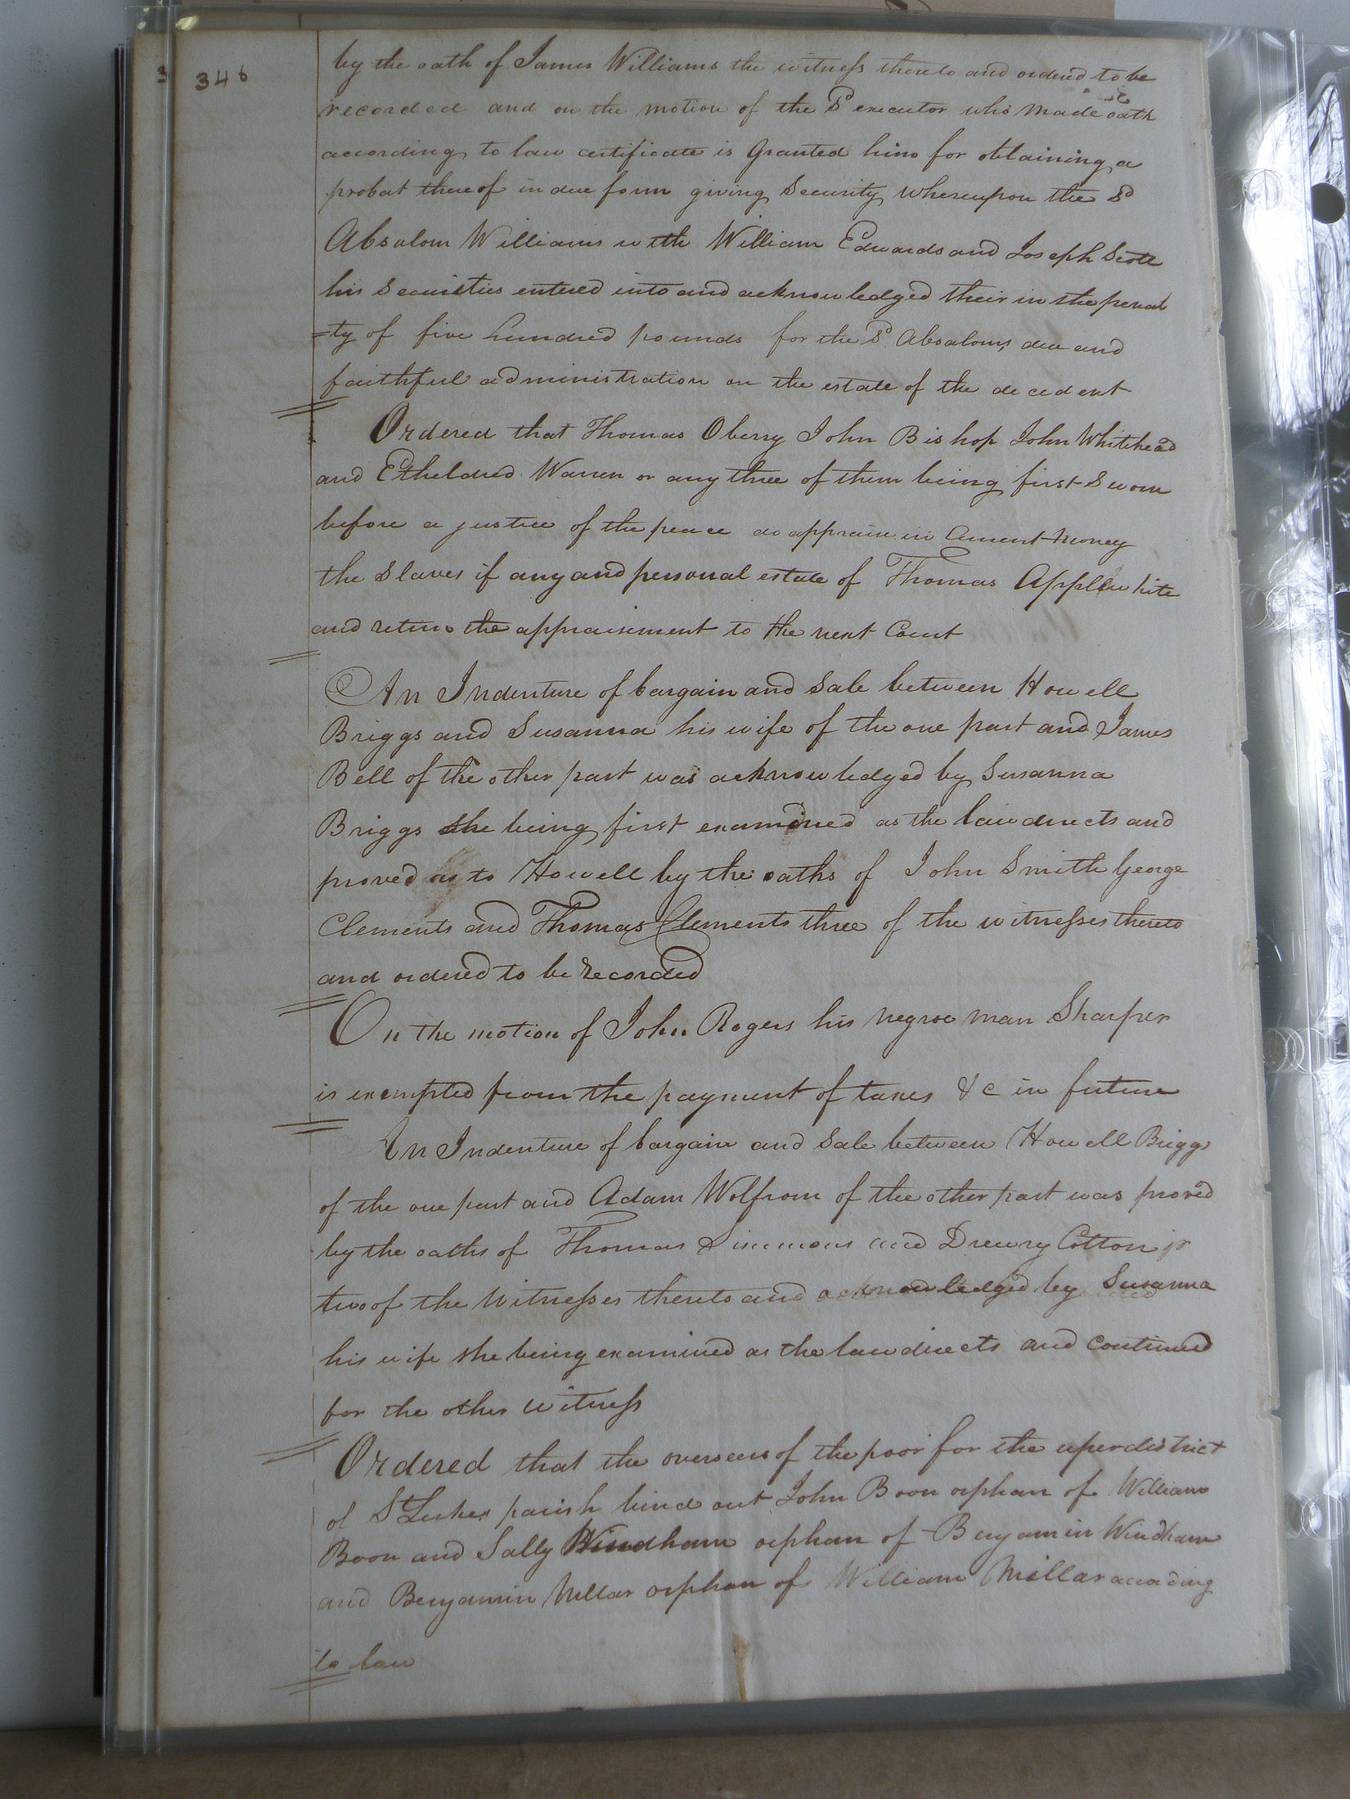 346
by the oath of James Williams the witness thereto and ordered to be
recorded and on the motion of the Sd executor who made oath
according to law certificate is Granted him for obtaining a
probat thereof in due form giving Security whereupon the Sd
Absalom Williams with William Edwards and Joseph Scott
his Securities entered into and acknowledged their in the penal
=ty of five hundred pounds for the Sd Absaloms due and
faithful administration on the estate of the decedent
Ordered that Thomas Oberry John Bishop John Whitehead
and Etheldred Warren or any three of them being first Sworn
before a justice of the peace do appraise in Current Money
the Slaves if any and personal estate of Thomas Applewhite
and return the appraisement to the next Court
An Indenture of bargain and Sale between Howell
Briggs and Susanna his wife of the one part and James
Bell of the other part was acknowledged by Susanna
Briggs she being first examined as the law directs and
proved as to Howell by the oaths of John Smith George
Clements and Thomas Clements three of the witnesses thereto
and ordered to be Recorded
On the motion of John Rogers his negroe man Sharper
is exempted from the payment of taxes &c in future
An Indenture of bargain and Sale between Howell Briggs
of the one part and Adam Wolfrom of the other part was proved
by the oaths of Thomas Simmons and Drewry Cotton jr
two of the Witnesses thereto and acknowledged by Susanna
his wife she being examined as the law directs and Continued
for the other Witness
Ordered that the overseers of the poor for the uper district
of St Lukes parish bind out John Boon orphan of William
Boon and Sally Windham orphan of Benjamin Windham
and Benjamin Millar orphan of William Millar according
to law